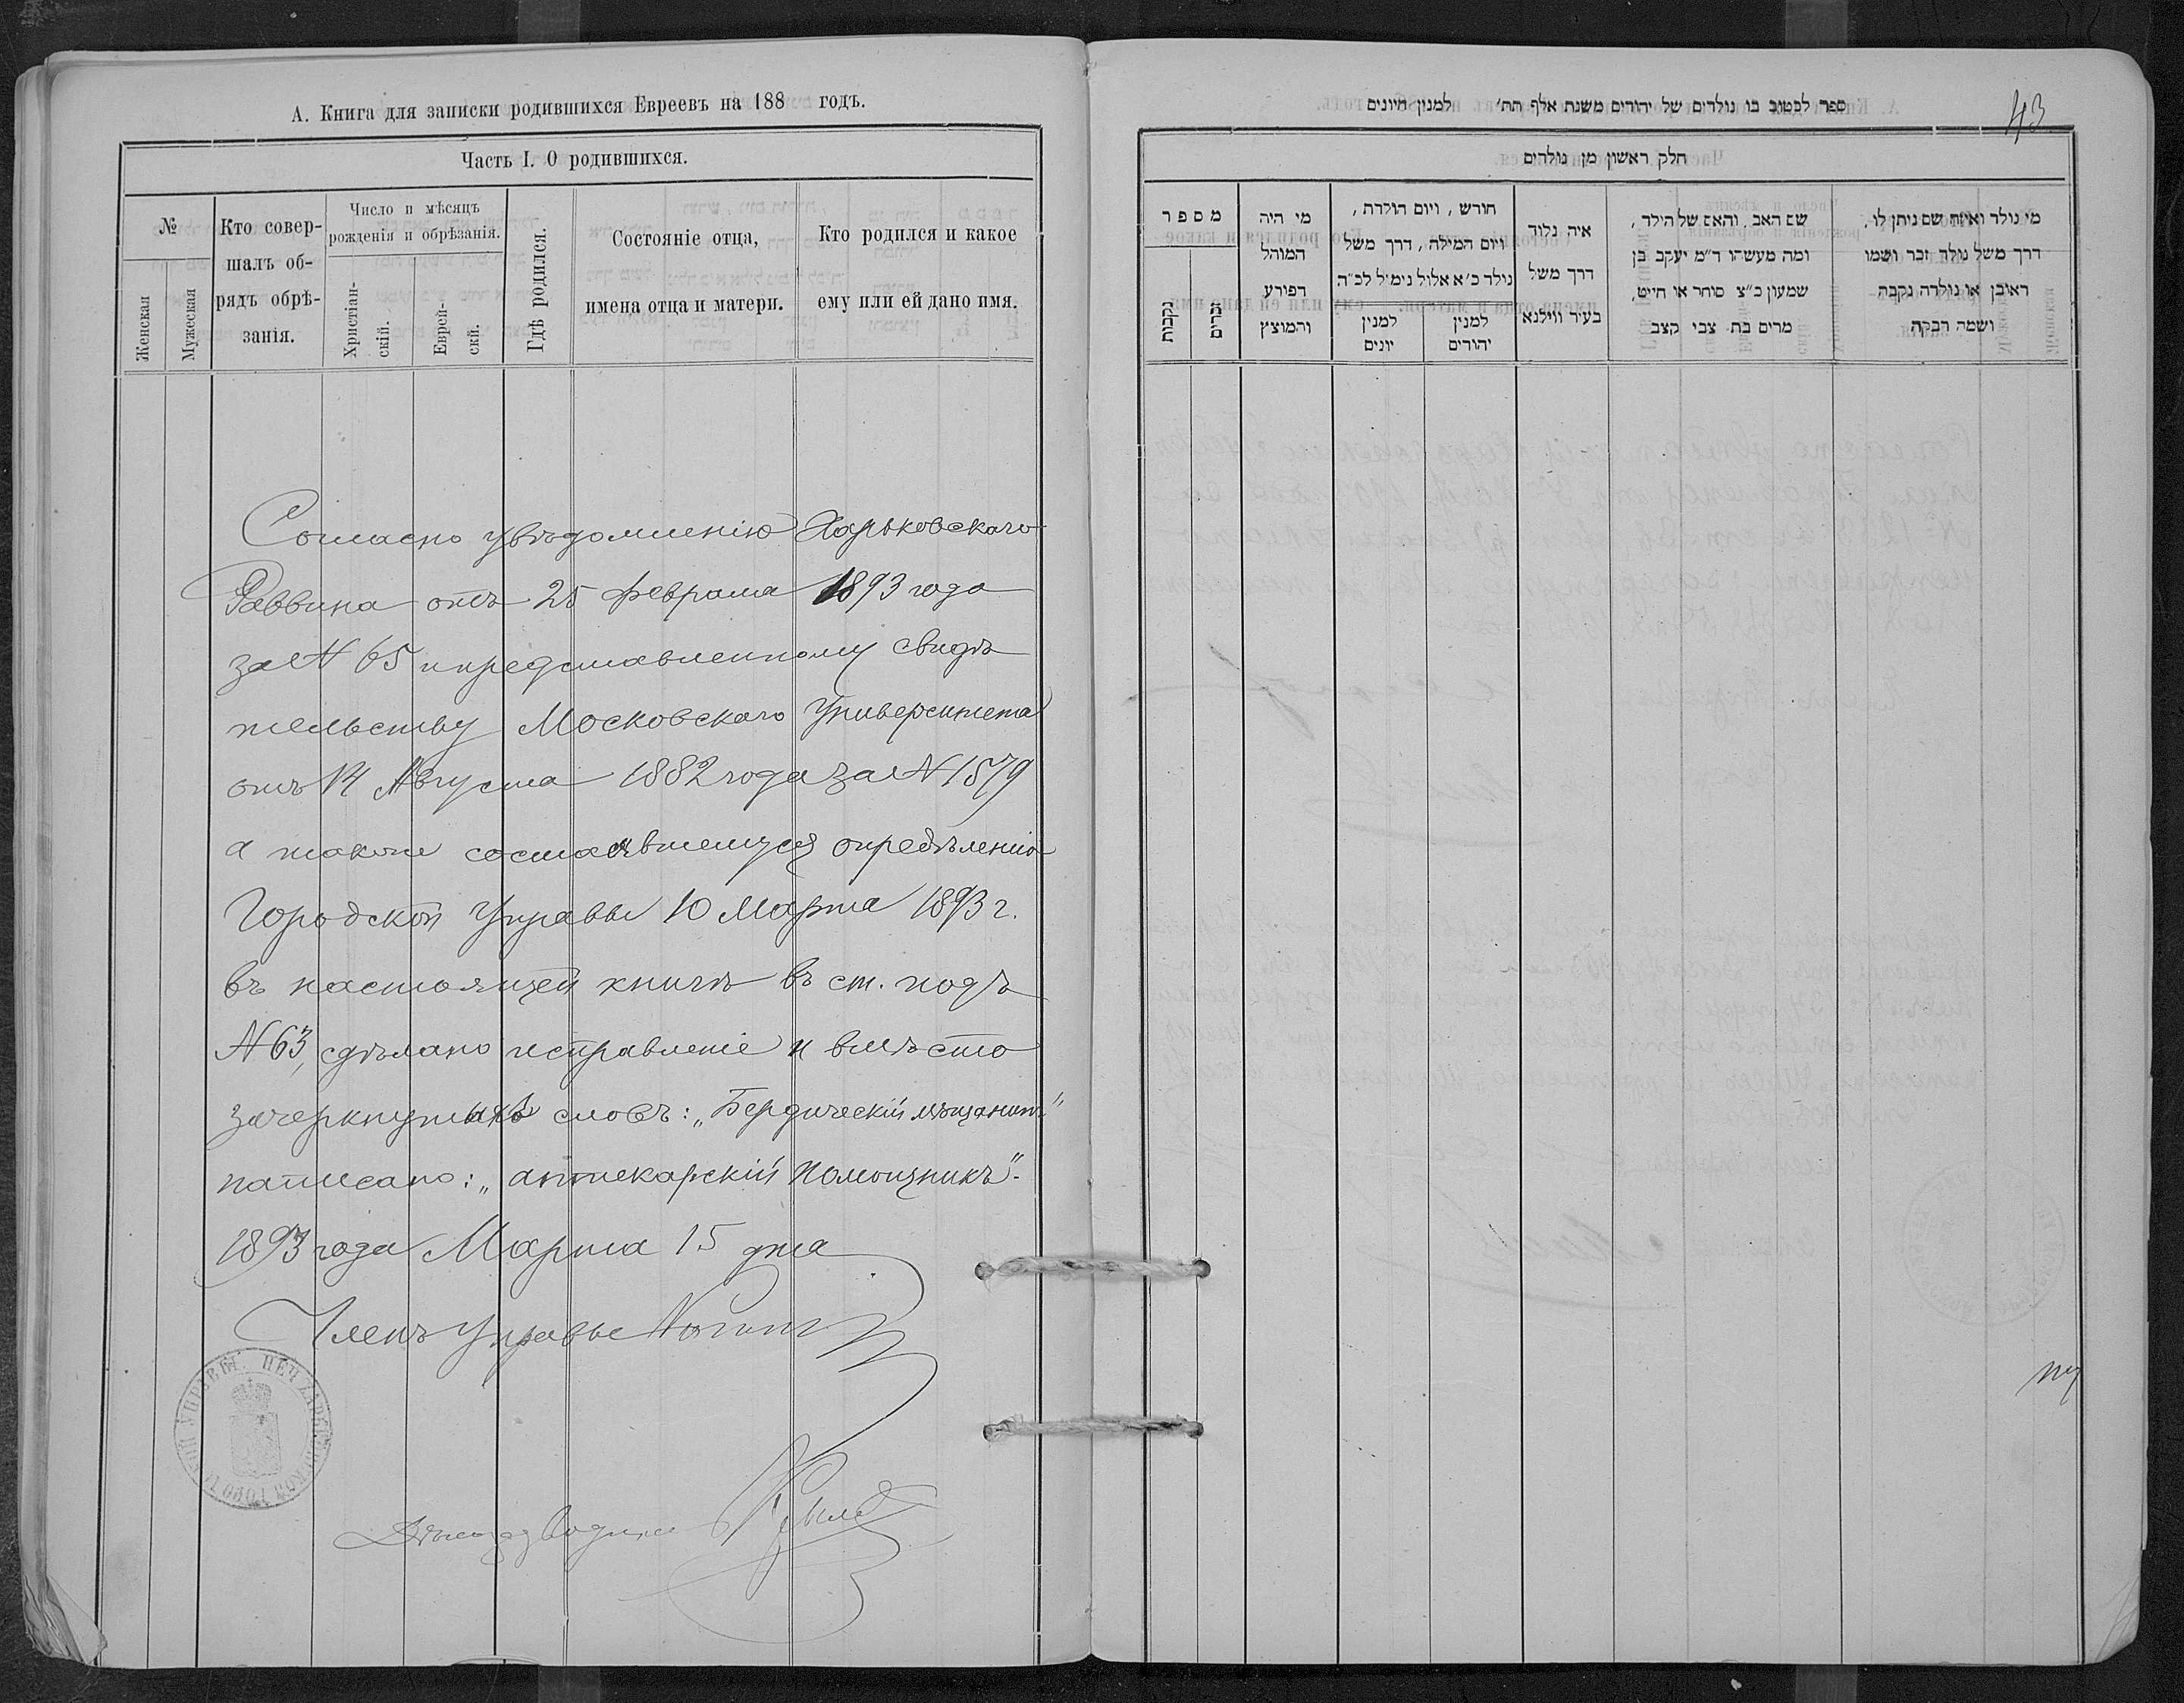 А. Книга для записки родившихся Евреевъ на 188 годъ.
Часть I. О родившихся.
№
Женская
Мужеская
Кто совер-
шалъ об-
рядъ обрѣ-
занія.
Число и мѣсяцъ
рожденія и обрѣзанія.
Христіан-
скій.
Еврей-
скій.
Гдѣ родился.
Состояніе отца,
имена отца и матери.
Кто родился и какое
ему или ей дано имя.
Согласно увѣдомленію Харьковскаго
Раввина отъ 25 февраля 1893 года
за № 65 и представленному свидѣ
тельству Московскаго Университета
отъ 14 Августа 1882 года за № 1579
а также состоявшемуся опредѣленію
Городской Управы 10 Марта 1893 г.
въ настоящей книгѣ въ ст. подъ
№ 63, сдѣлано исправленіе и вмѣсто
зачеркнутыхъ словъ: „Бердическій мѣщанинъ"
написано: „аптекарскій помощникъ".
1893 года Марта 15 дня
Членъ Управы
ПЕЧ. ХАРЬКОВСКОЙ ГОРОДСКОЙ УПРАВЫ.
43
ספר לכטוב בו נולדים של יהודים משנת אלף תת׳ למנין היונים
חלק ראשון מן נולדים
מספר
נקבות
זכרים
מי היה
המוהל
הפורע
והמוצץ
חורש , ויום הולרת ,
ויום המילה , דרך משל
נולד כ׳א אלול נימ׳ל לכ״ה
למנין
יונים
למנין
יהודים
איה נלוד
דרך משל
בעיר ווילנא
שם האב , והאם של הילד ,
ומה מעשהו ד״מ יעקב בן
שמעון כ״צ סוחר או חייט,
מרים בת צבי קצב
מי נולד ואיזה שם ניתן לו,
דרך משל נולד זכר ושמו
ראובן או נולדה נקבה
ושמה רבקה